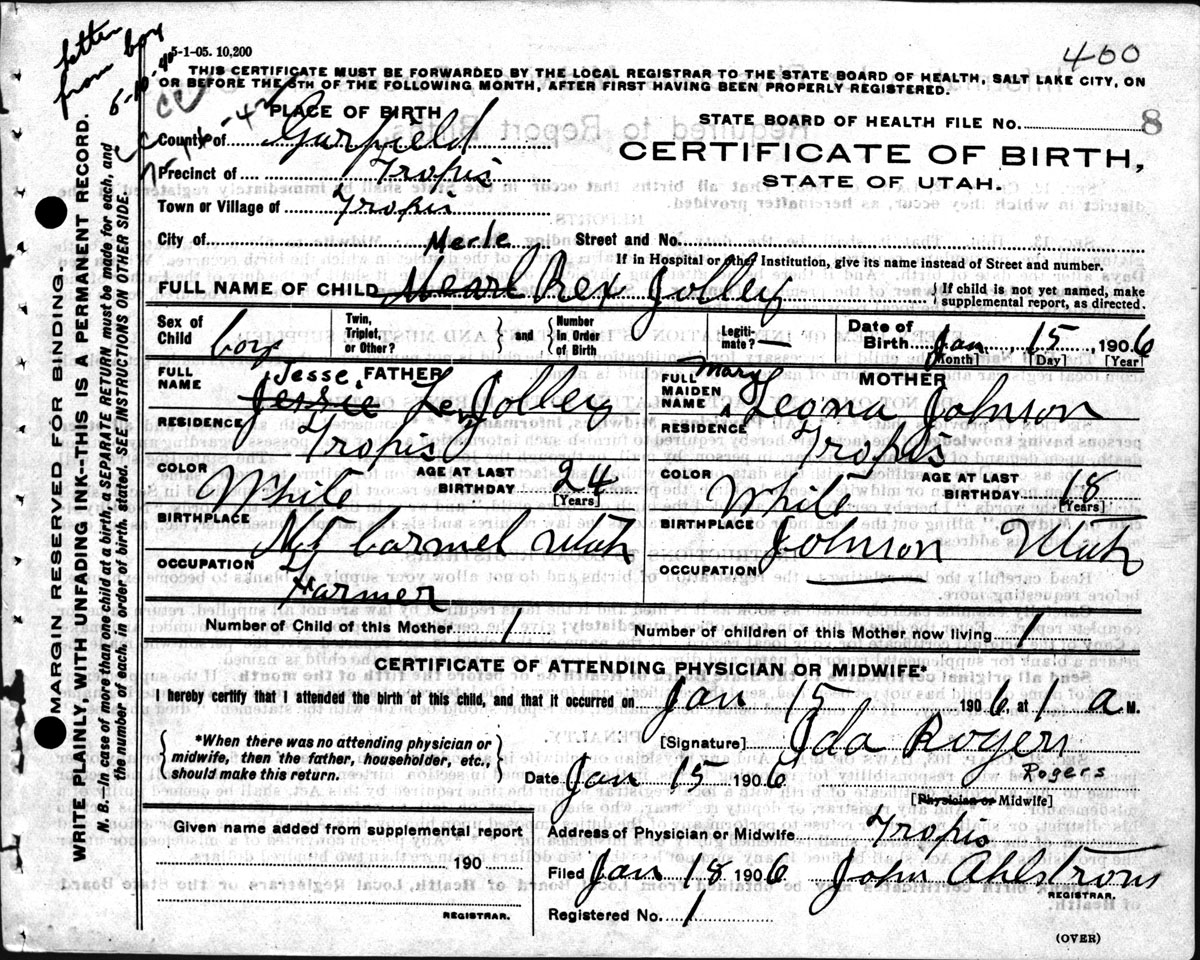 letter
from boy
5-10-40
5-1-05. 10,200
400
THIS CERTIFICATE MUST BE FORWARDED BY THE LOCAL REGISTRAR TO THE STATE BOARD OF HEALTH, SALT LAKE CITY, ON
OR BEFORE THE 5TH OF THE FOLLOWING MONTH, AFTER FIRST HAVING BEEN PROPERLY REGISTERED.
PLACE OF BIRTH
STATE BOARD OF HEALTH FILE No. 8
County of Garfield
CERTIFICATE OF BIRTH,
STATE OF UTAH.
Precinct of Tropic
Town or Village of Tropic
City of Street and No.
If in Hospital or other Institution, give its name instead of Street and number.
Merle
FULL NAME OF CHILD Mearl Rex Jolley
If child is not yet named, make
supplemental report, as directed.
Sex of Child boy
Twin, Triplet, or Other? and Number in Order of Birth
Legiti-mate? —
Date of Birth Jan 15, 1906
[Month] [Day] [Year]
FULL NAME FATHER
Jesse
Jessie Le Jolley
FULL MAIDEN NAME MOTHER
Mary
Leona Johnson
RESIDENCE Tropic
RESIDENCE Tropic
COLOR White AGE AT LAST BIRTHDAY 24 [Years]
COLOR White AGE AT LAST BIRTHDAY 18 [Years]
BIRTHPLACE Mt Carmel Utah
BIRTHPLACE Johnson Utah
OCCUPATION Farmer
OCCUPATION —
Number of Child of this Mother 1 Number of children of this Mother now living 1
CERTIFICATE OF ATTENDING PHYSICIAN OR MIDWIFE*
I hereby certify that I attended the birth of this child, and that it occurred on Jan 15 1906 at 1 a M.
*When there was no attending physician or
midwife, then the father, householder, etc.,
should make this return.
[Signature] Ida Rogers
Rogers
Date Jan 15 1906 [Physician or Midwife]
Given name added from supplemental report
190
REGISTRAR.
Address of Physician or Midwife Tropic
Filed Jan 18 1906 John Ahlstrom
REGISTRAR.
Registered No. 1
(OVER)
MARGIN RESERVED FOR BINDING.
WRITE PLAINLY, WITH UNFADING INK--THIS IS A PERMANENT RECORD.
N. B.—In case of more than one child at a birth, a SEPARATE RETURN must be made for each, and
the number of each, in order of birth, stated. SEE INSTRUCTIONS ON OTHER SIDE.